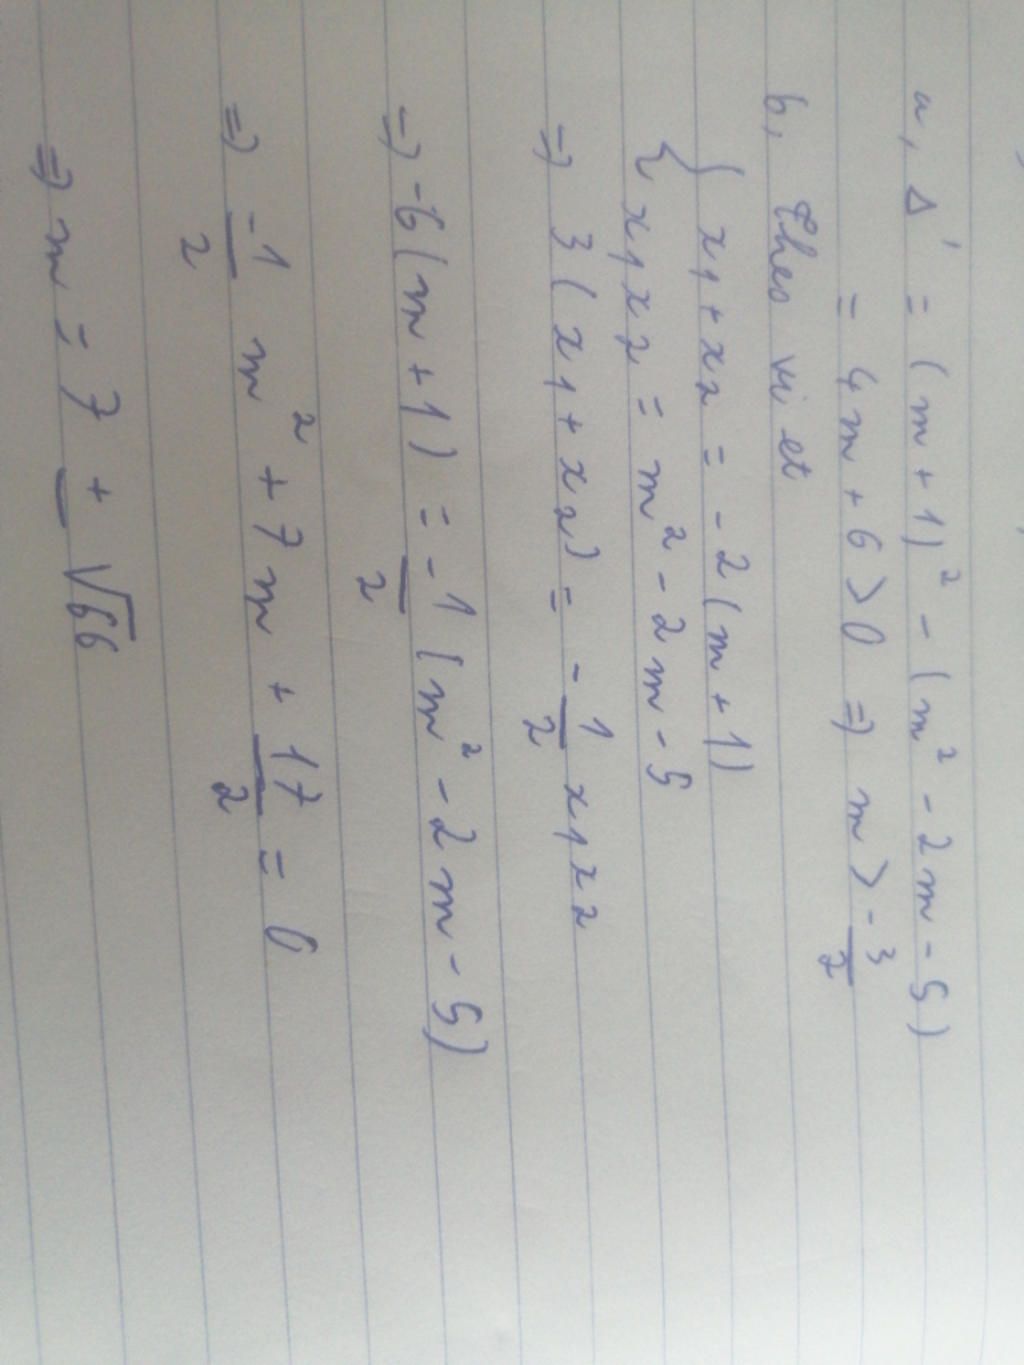 a, Δ' = (m+1)² - (m² - 2m - 5)
= 4m + 6 > 0 ⇒ m > -3/2
b, Theo vi et
{ x1 + x2 = -2(m+1)
{ x1x2 = m² - 2m - 5
⇒ 3(x1 + x2) = -1/2 x1x2
⇒ -6(m+1) = -1/2 (m² - 2m - 5)
⇒ -1/2 m² + 7m + 17/2 = 0
⇒ m = 7 ± √66